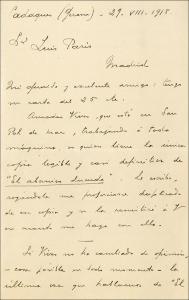 Cadaqués (Gerona) - 29. VIII. 1918.
Sr Luis París
Madrid
Mi querido y excelente amigo: tengo
su carta del 25 de
Amadeo Vives, que está en San
Pol de mar, trabajando á toda
máquina, es quien tiene la única
copia legible y casi definitiva de
"El abanico duende". Le escribo,
rogándole me proporcione
de su copia y se la remitiré á V
en cuanto me haga con ella.
Si Vives no ha cambiado de opinión,
- cosa posible en todo momento - la
última vez que hablamos de "El